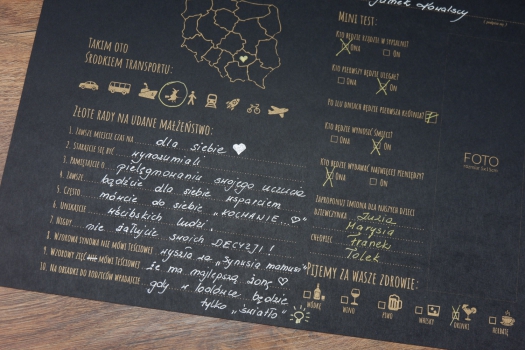 Tomek Kowalscy
TAKIM OTO
ŚRODKIEM TRANSPORTU:
ZŁOTE RADY NA UDANE MAŁŻEŃSTWO:
1. ZAWSZE MIEJCIE CZAS NA dla siebie
2. STARAJCIE SIĘ BYĆ wyrozumiali
3. PAMIĘTAJCIE O pielęgnowaniu swojego uczucia
4. ZAWSZE bądźcie dla siebie wsparciem
5. CZĘSTO mówcie do siebie „KOCHANIE...
6. UNIKAJCIE wścibskich ludzi
7. NIGDY nie żałujcie swoich DECYZJI!
8. WZOROWA SYNOWA NIE MÓWI TEŚCIOWEJ wyszła za „synusia mamusi"
9. WZOROWY ZIĘĆ MÓWI TEŚCIOWEJ że ma najlepszą żonę
10. NA OBIADKI DO RODZICÓW WPADAJCIE gdy w lodówce będzie
tylko „światło"
MINI TEST:
KTO BĘDZIE RZĄDZIŁ W SYPIALNI?
ONA ON
KTO PIERWSZY BĘDZIE ULEGAŁ?
ONA ON
PO ILU DNIACH BĘDZIE PIERWSZA KŁÓTNIA?
KTO BĘDZIE WYNOSIĆ ŚMIECI?
ONA ON
KTO BĘDZIE WYDAWAŁ NAJWIĘCEJ PIENIĘDZY?
ONA ON
ZAPROPONUJ IMIONA DLA NASZYCH DZIECI
DZIEWCZYNKA Julia
Marysia
CHŁOPIEC Franek
Tolek
PIJEMY ZA WASZE ZDROWIE:
WÓDKĘ WINO PIWO WHISKY DRINKI HERBATĘ
FOTO